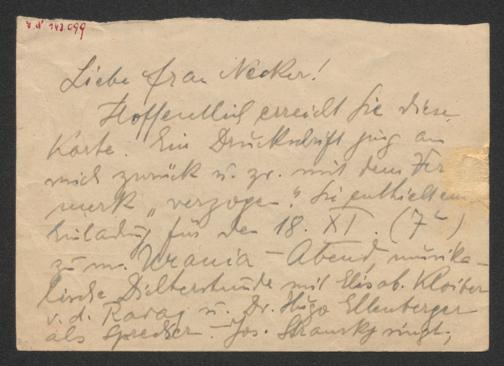 I.N. 143.099
Liebe Frau Necker!
Hoffentlich erreicht Sie diese
Karte. Ein Druckschrift ging an
mich zurück u. zw. mit dem Ver
merk „verzogen“. Sie enthielt eine
Einladung für den 18. XI. (7ʰ)
zu m. Urania-Abend, musika-
lische Dichterstunde mit Elisab. Kloiber
v. d. Ravag u. Dr. Hugo Ellenberger
als Sprecher. Jos. Stransky singt,